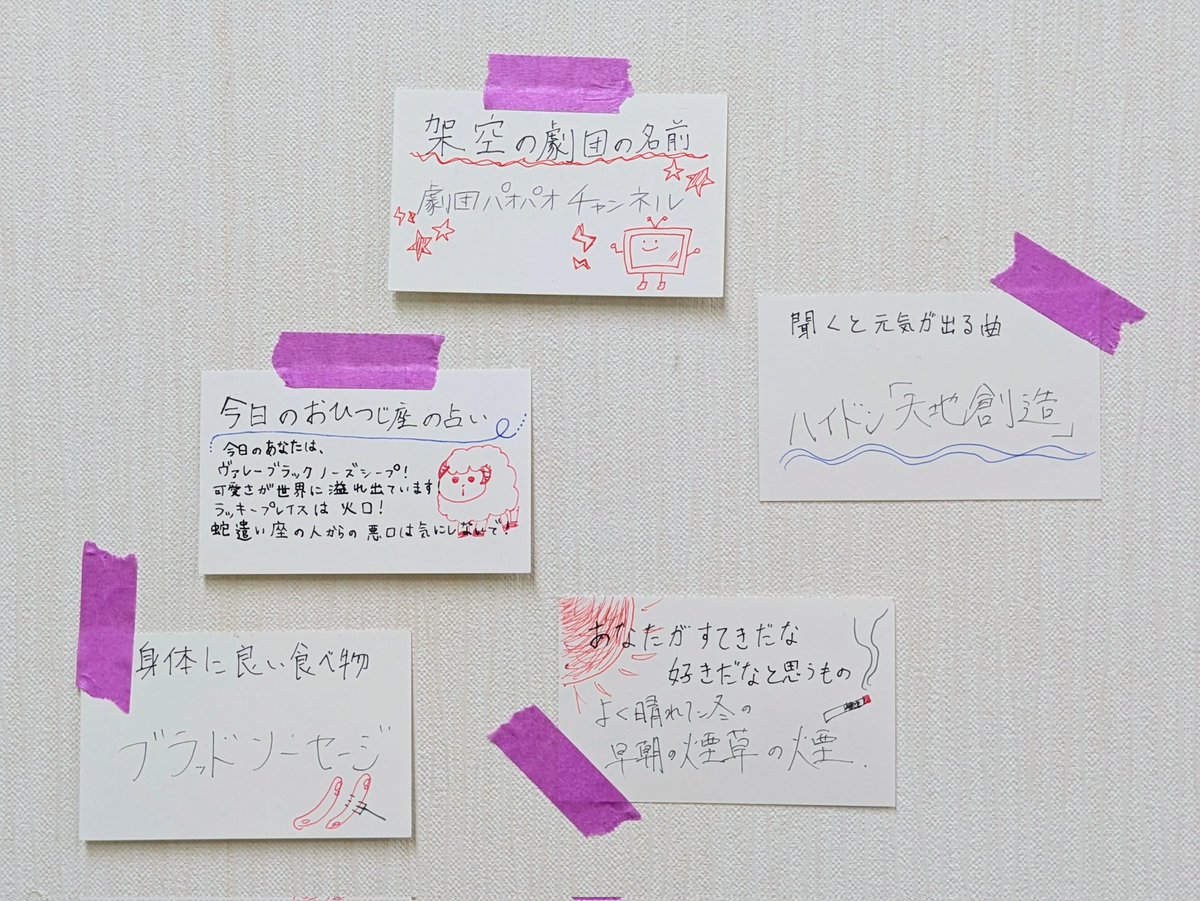 架空の劇団の名前
劇団パオパオチャンネル
聞くと元気が出る曲
ハイドン「天地創造」
今日のおひつじ座の占い
今日のあなたは、
ヴァレーブラックノーズシープ!
可愛さが世界に溢れ出ています!
ラッキープレイスは火口!
蛇遣い座の人からの悪口は気にしないで!
身体に良い食べ物
ブラッドソーセージ
あなたがすてきだな
好きだなと思うもの
よく晴れた冬の
早朝の煙草の煙.